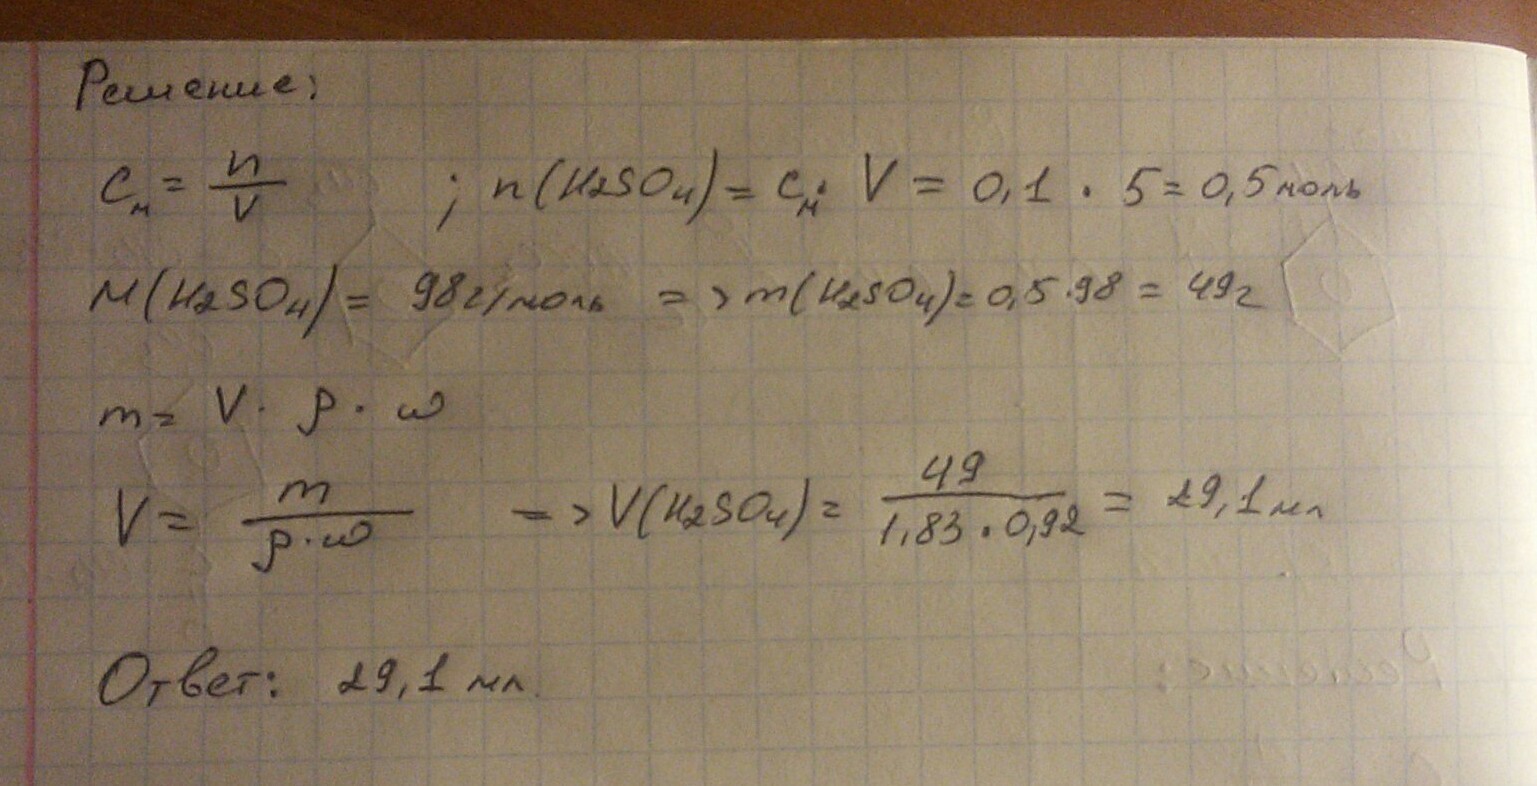 Решение:
Cм = n/V ; n(H2SO4) = Cм · V = 0,1 · 5 = 0,5 моль
M(H2SO4) = 98 г/моль => m(H2SO4) = 0,5 · 98 = 49 г
m = V · ρ · ω
V = m/(ρ · ω) => V(H2SO4) = 49/(1,83 · 0,92) = 29,1 мл
Ответ: 29,1 мл.